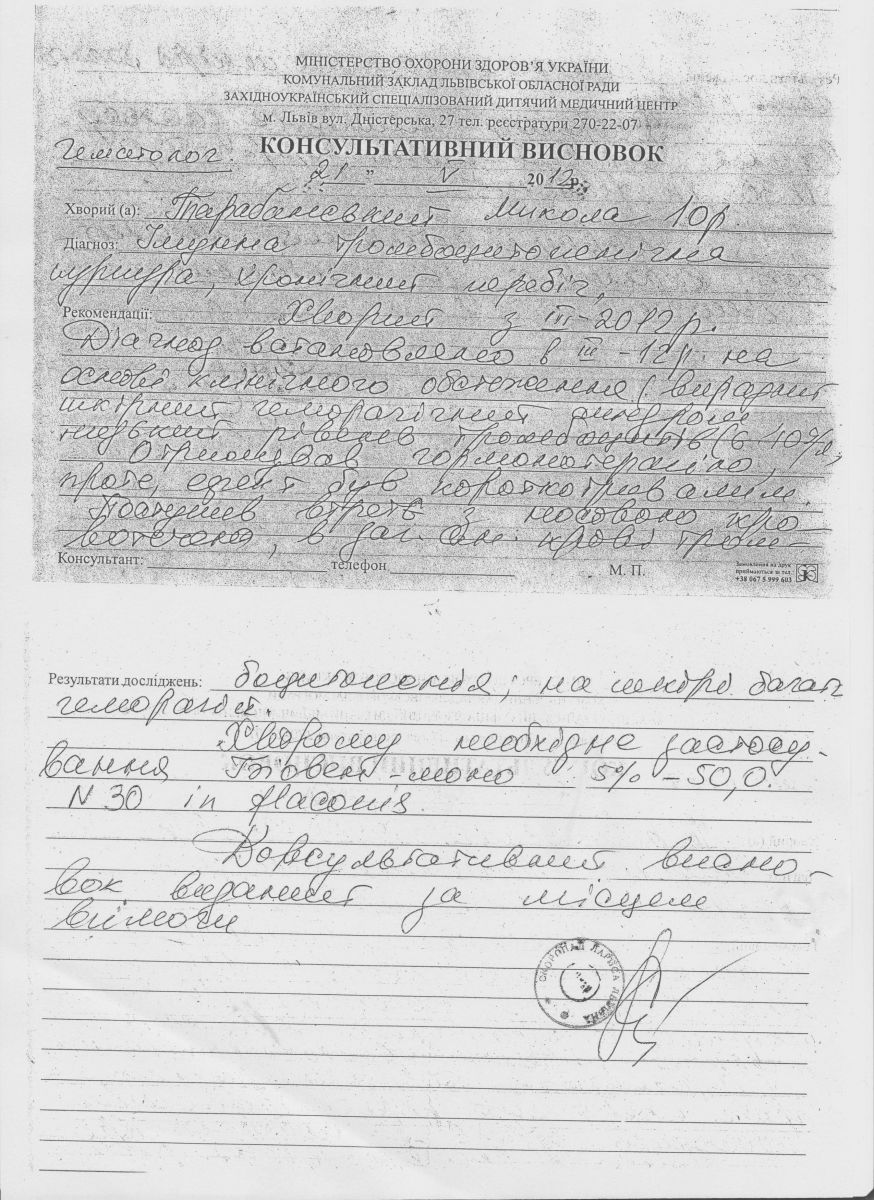 МІНІСТЕРСТВО ОХОРОНИ ЗДОРОВ'Я УКРАЇНИ
КОМУНАЛЬНИЙ ЗАКЛАД ЛЬВІВСЬКОЇ ОБЛАСНОЇ РАДИ
ЗАХІДНОУКРАЇНСЬКИЙ СПЕЦІАЛІЗОВАНИЙ ДИТЯЧИЙ МЕДИЧНИЙ ЦЕНТР
м. Львів вул. Дністерська, 27 тел. реєстратури 270-22-07
Гематолог.
КОНСУЛЬТАТИВНИЙ ВИСНОВОК
21 " V 2012р.
Хворий (а): Микола 10р.
Діагноз: Імунна тромбоцитопенічна
пурпура, хронічний перебіг,
Рекомендації: Хворіє з ІІІ-2012р.
Діагноз встановлено в ІІІ-12р. на
основі клінічного обстеження (виражений
шкірний геморагічний синдром
низький рівень тромбоцитів
Отримував гормонотерапію,
проте, ефект був короткотривалим.
Поступив втретє з носовою кро
вотечею, в заг. ан. крові тром-
Консультант: телефон М. П.
Замовлення на друк
приймаються за тел.
+38 067 5 999 603
Результати досліджень: боцитопенія; на шкірі багато
геморагій.
Хворому необхідне застосу-
вання моно 5% - 50,0.
N 30 in flaconis
Консультативний висно-
вок виданий за місцем
вимоги
ЛАРИСА